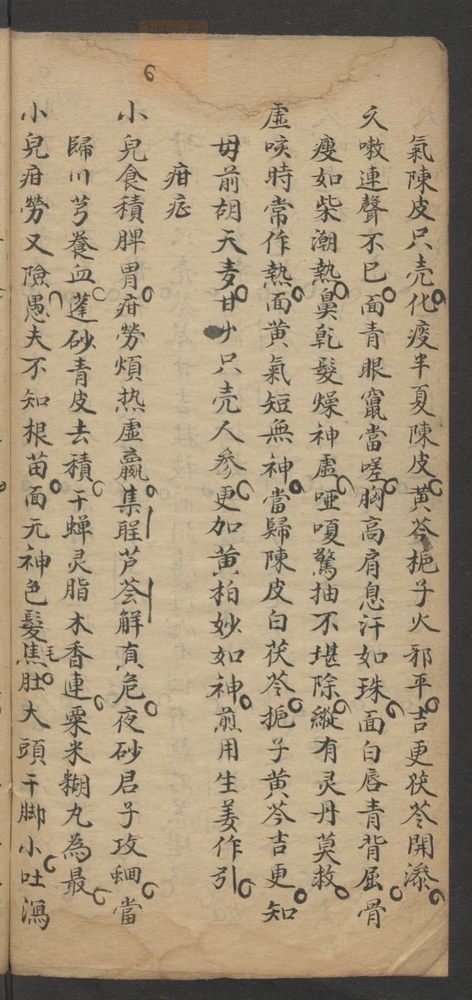 氣陳皮只壳化痰半夏陳皮黄芩梔子火邪平吉更茯苓開
久嗽連聲不已面青眼竄當嗟胸高肩息汗如珠面白唇青背屈骨
瘦如柴潮熱鼻乾髮燥神虚哑嗄驚抽不堪除縱有灵丹莫救
虚咳時常作熱面黄氣短無神當歸陳皮白茯苓梔子黄芩吉更知
母前胡天麦甘少只壳人参更加黄柏妙如神煎用生姜作引
疳症
小兒食積脾胃疳勞煩热虚羸集腥芦荟解真危夜砂君子攻蛔當
歸川芎養血蓬砂青皮去積干蝉灵脂木香連粟米糊丸為最
小兒疳勞又險愚夫不知根苗面无神色髮毛焦肚大頭干脚小吐瀉